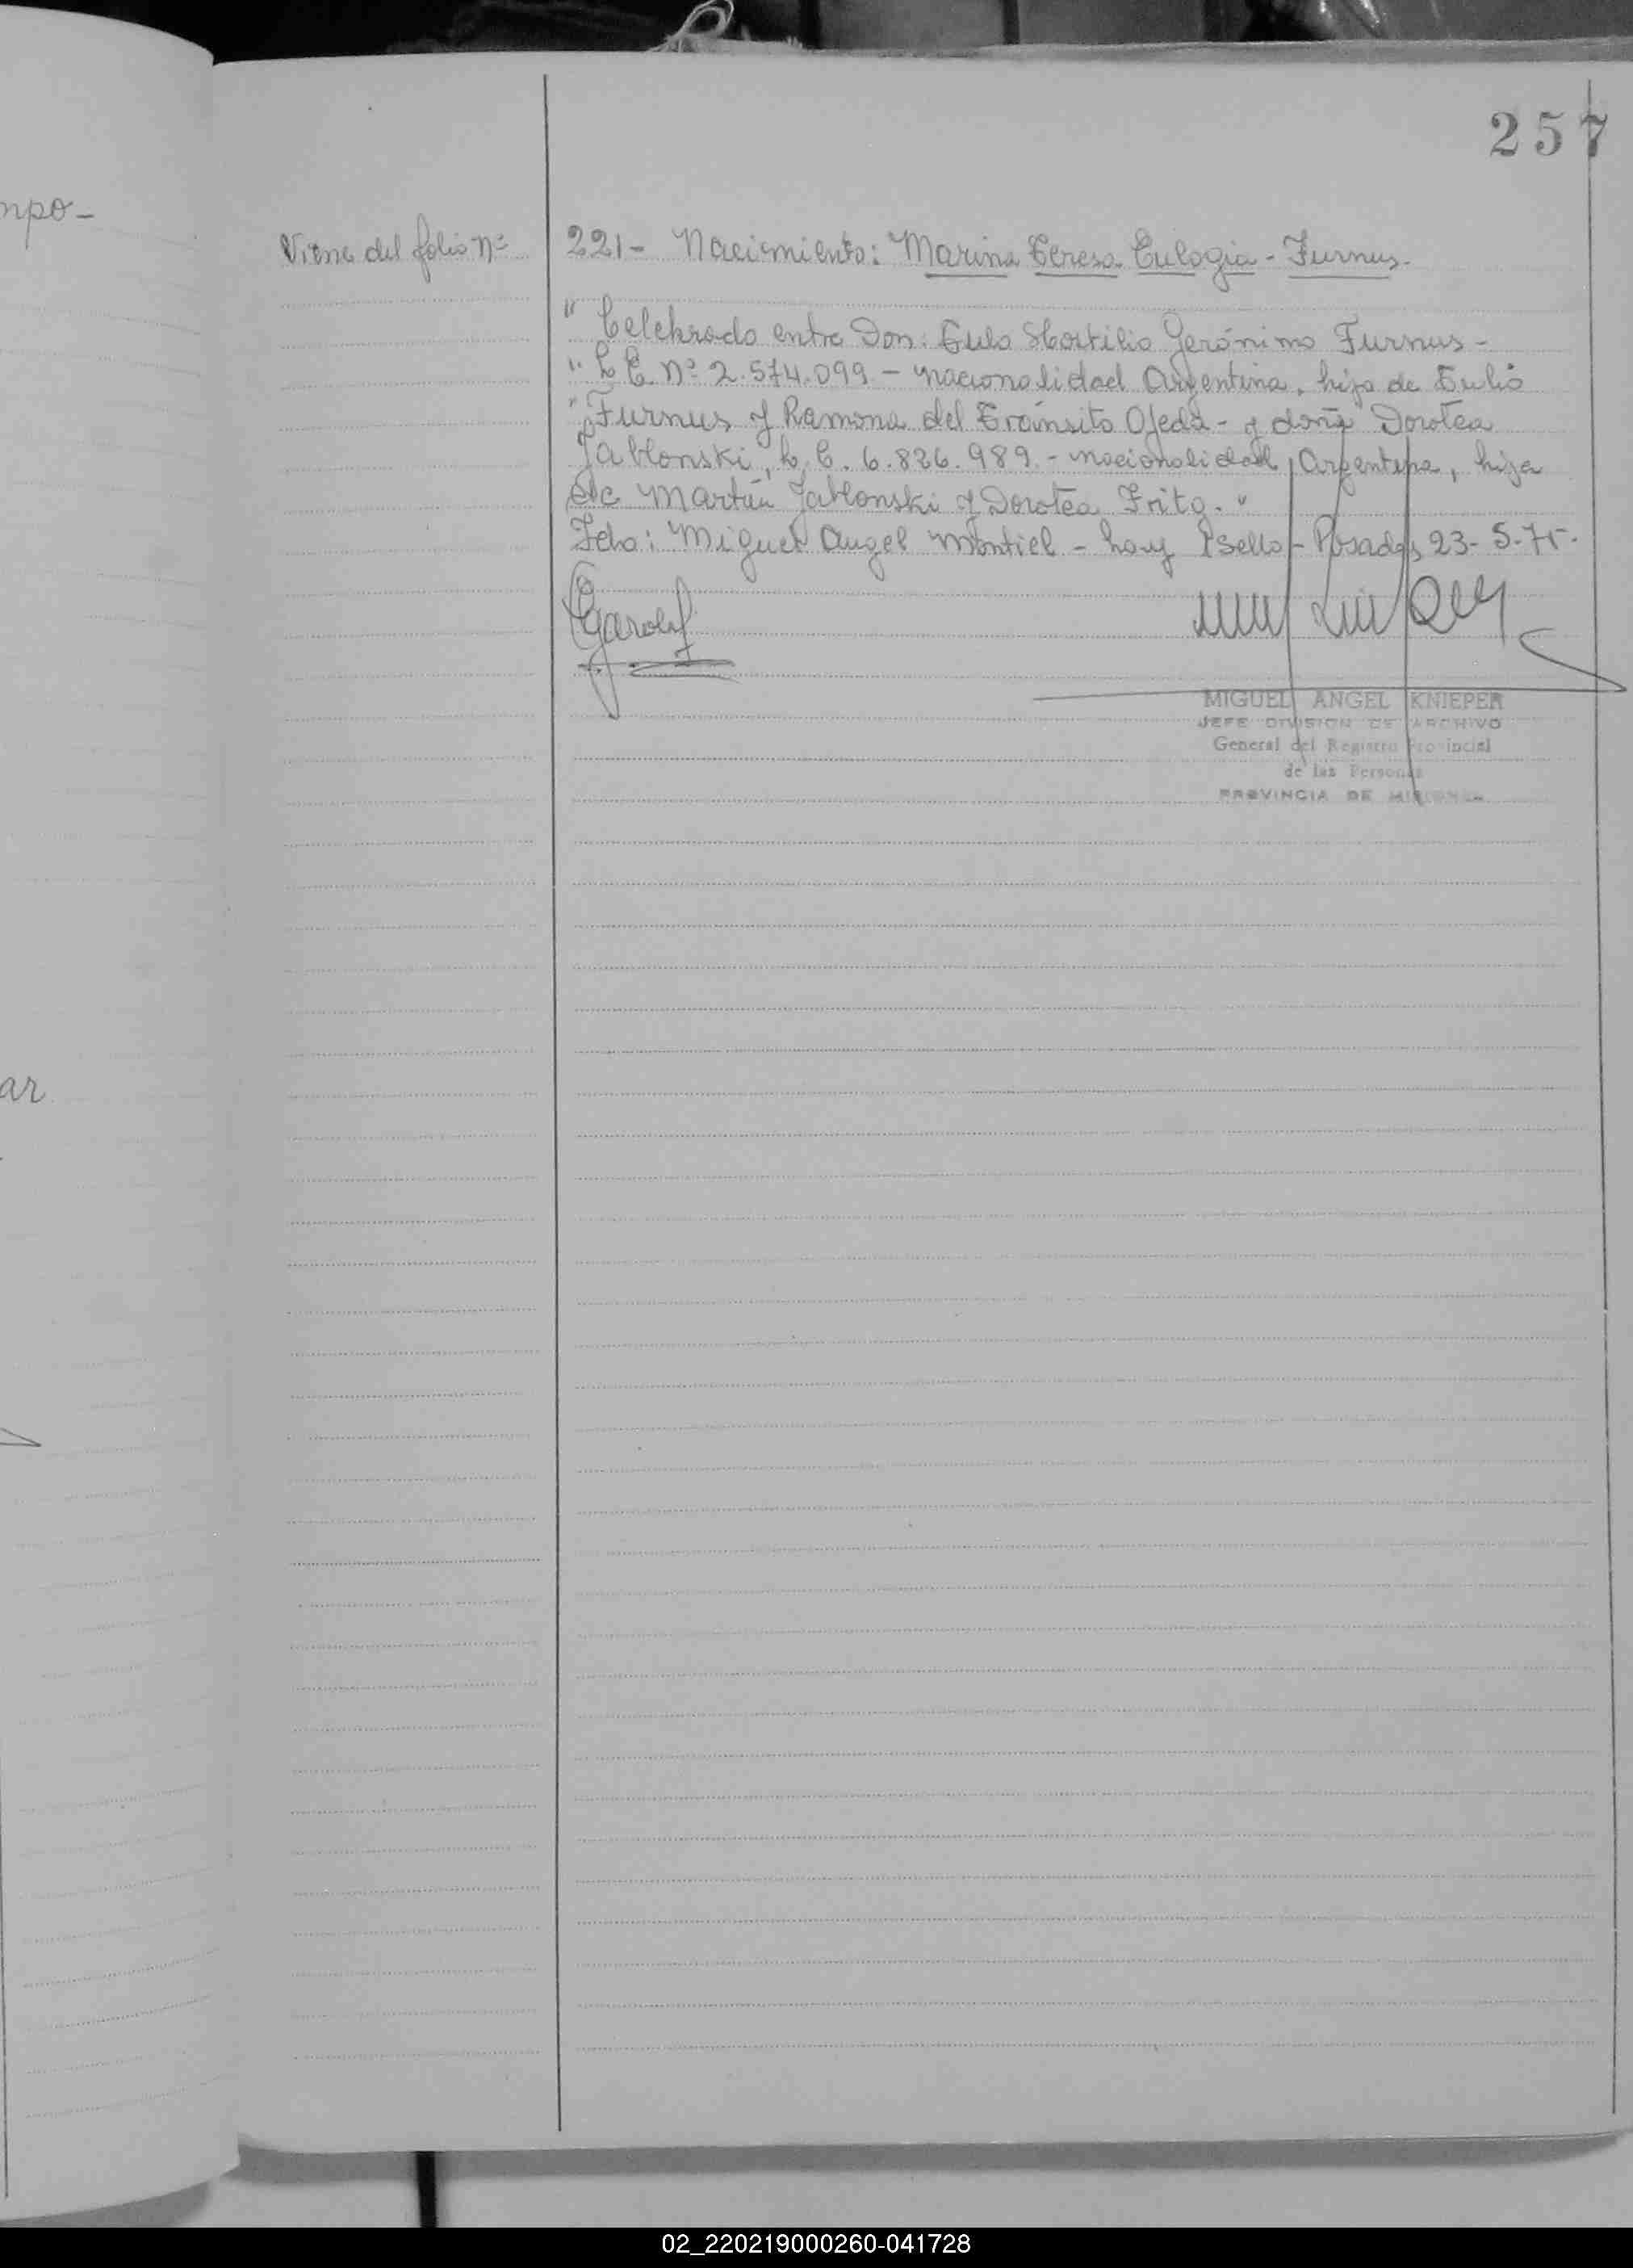 257
npo-
Viene del folio nº 221- Nacimiento: Marina Teresa Eulogia - Furnus.
" Celebrado entre Don: Tulo Hostilio Gerónimo Furnus -
" L E. Nº 2.574.099 - nacionalidad Argentina, hijo de Tulio
" Furnus y Ramona del Tránsito Ojeda - y doña Dorotea
Jablonski, L. C. 6.826.989.- nacionalidad Argentina, hija
de Martín Jablonski y Dorotea Fritz. "
Fdo: Miguel Angel Montiel - hay 1 sello - Posadas 23-5-75.
MIGUEL ANGEL KNIEPER
JEFE DIVISION DE ARCHIVO
General del Registro Provincial
de las Personas
PROVINCIA DE MISIONES
ar
02_220219000260-041728